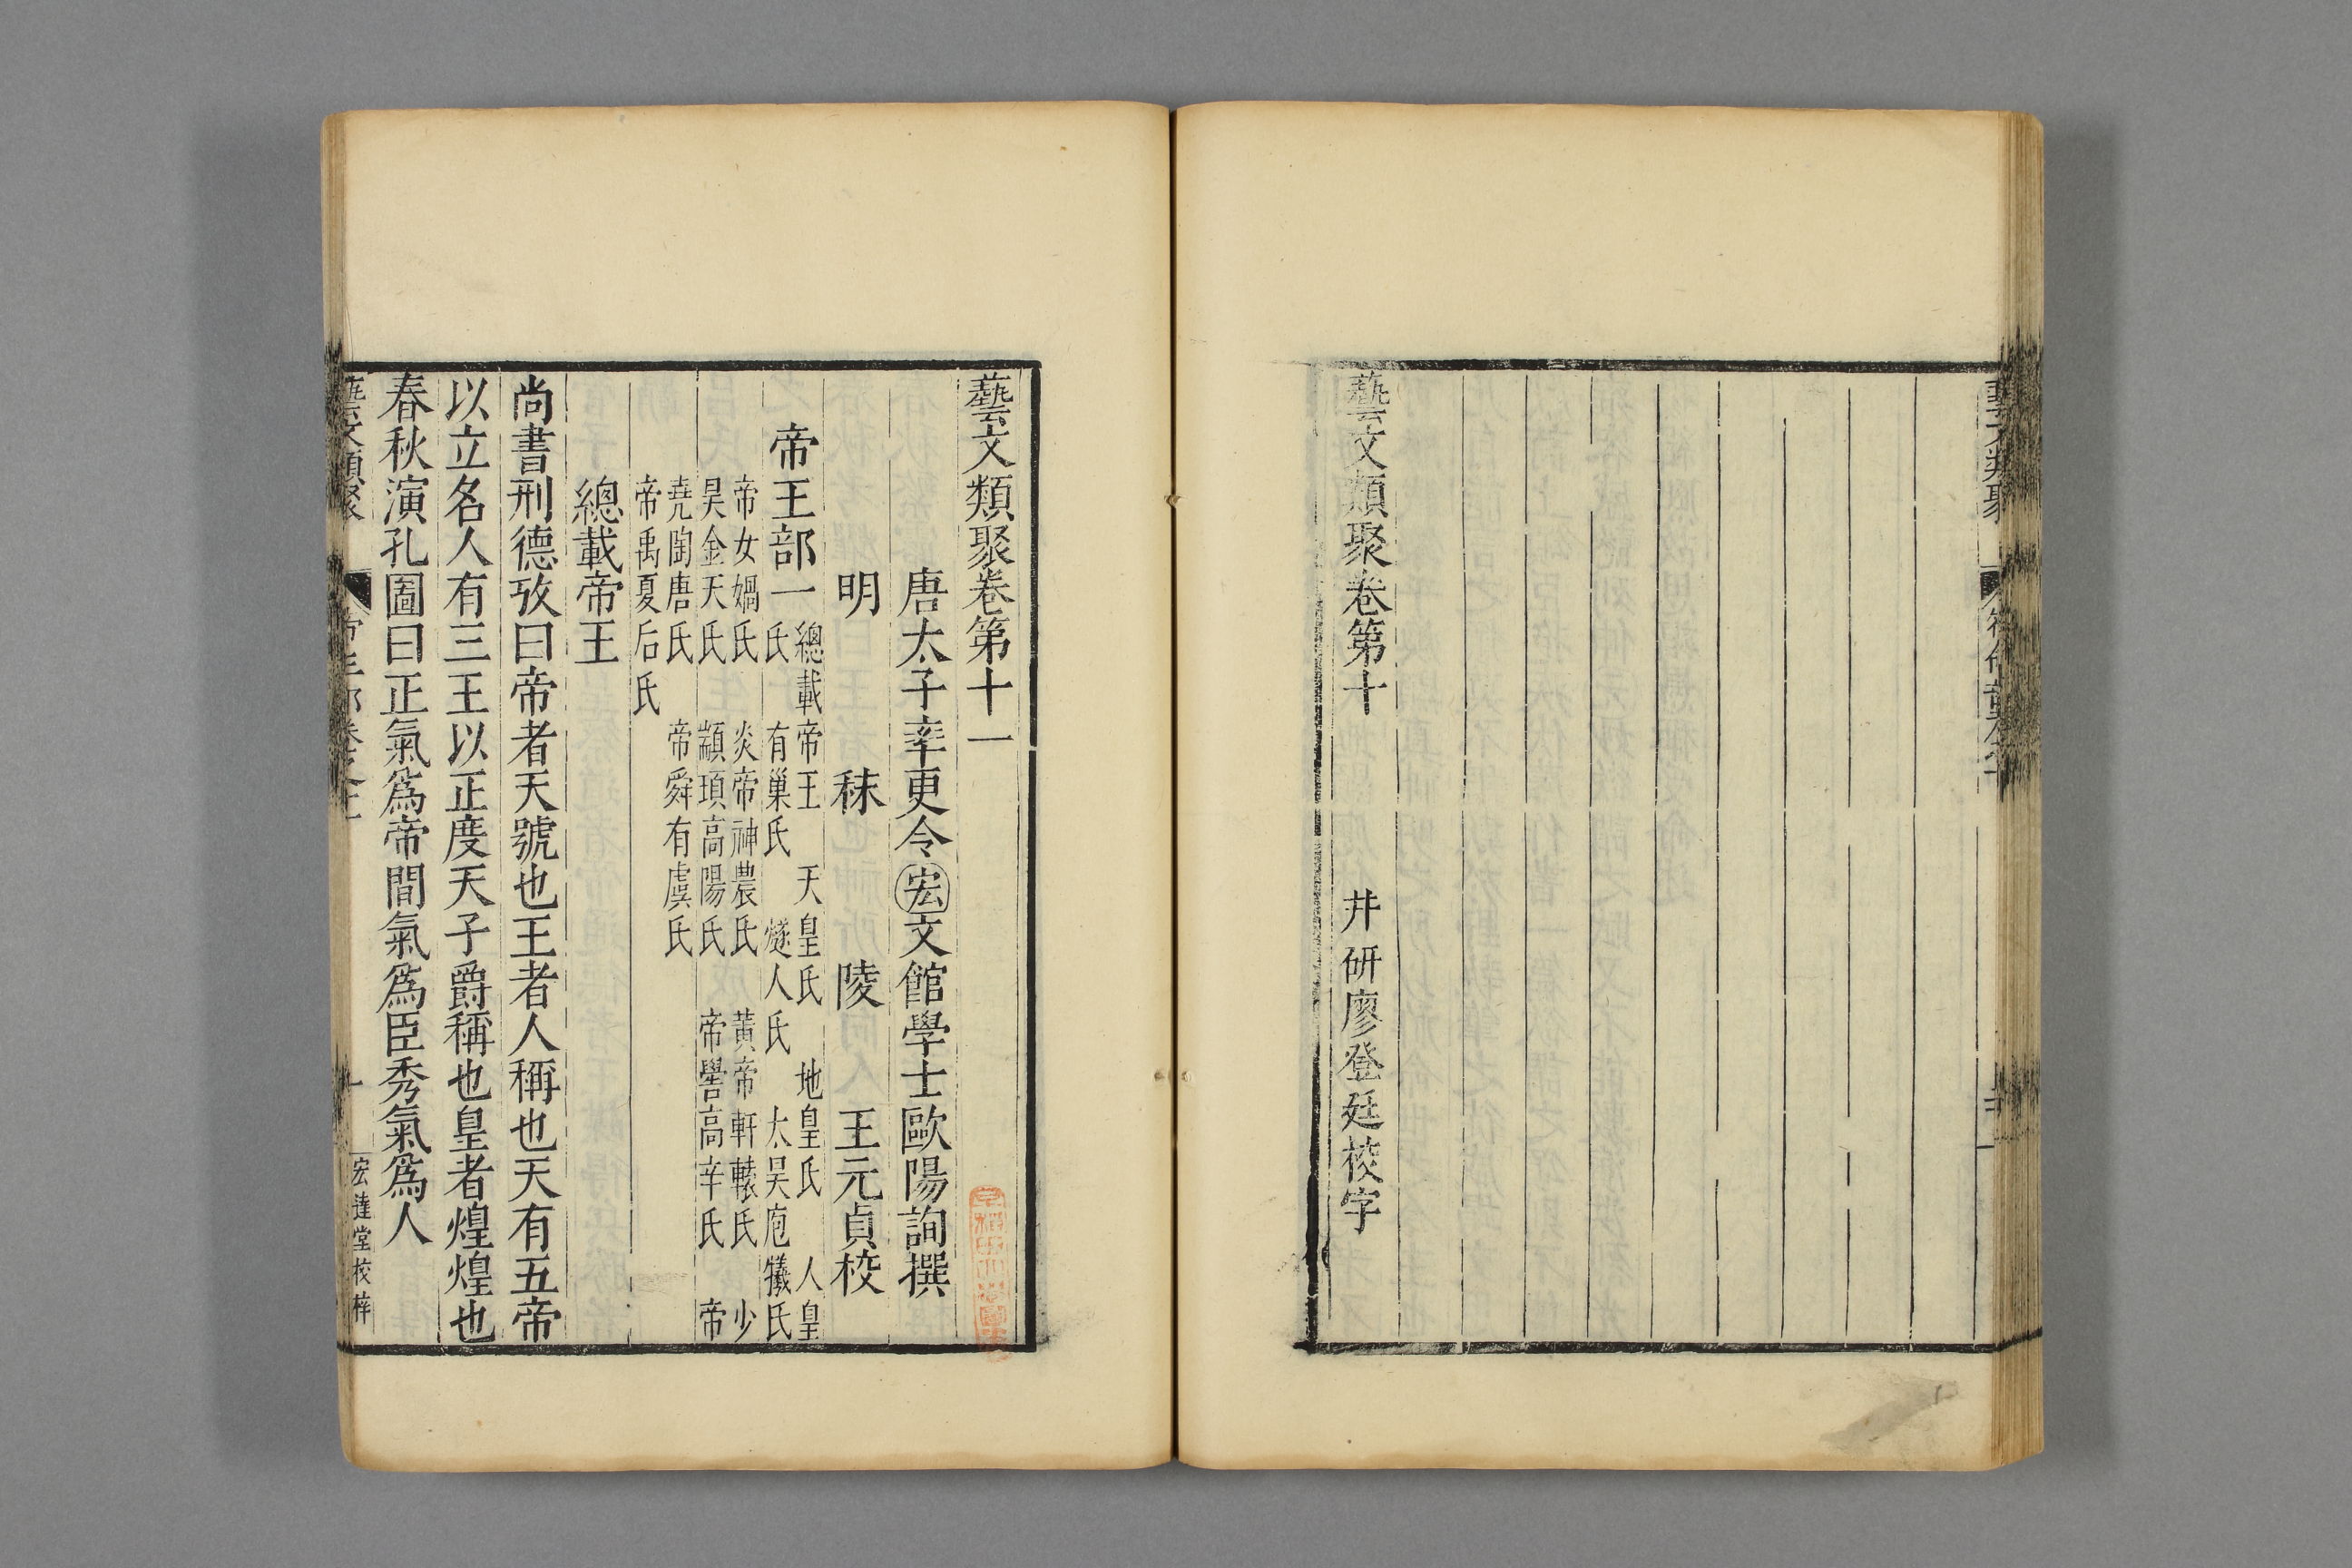 藝文類聚
藝文類聚卷第十
井研廖登廷校字
藝文類聚卷第十一
唐太子率更令宏文館學士歐陽詢撰
明 秣 陵 王元貞校
帝王部一
總載帝王 天皇氏 地皇氏 人皇
氏 有巢氏 燧人氏 太昊庖犧氏
帝女媧氏 炎帝神農氏 黃帝軒轅氏 少
昊金天氏 顓頊高陽氏 帝嚳高辛氏 帝
堯陶唐氏 帝舜有虞氏
帝禹夏后氏
總載帝王
尚書刑德攷曰帝者天號也王者人稱也天有五帝
以立名人有三王以正度天子爵稱也皇者煌煌也
春秋演孔圖曰正氣爲帝間氣爲臣秀氣爲人
藝文類聚 帝王部卷之十一 一 宏達堂校梓